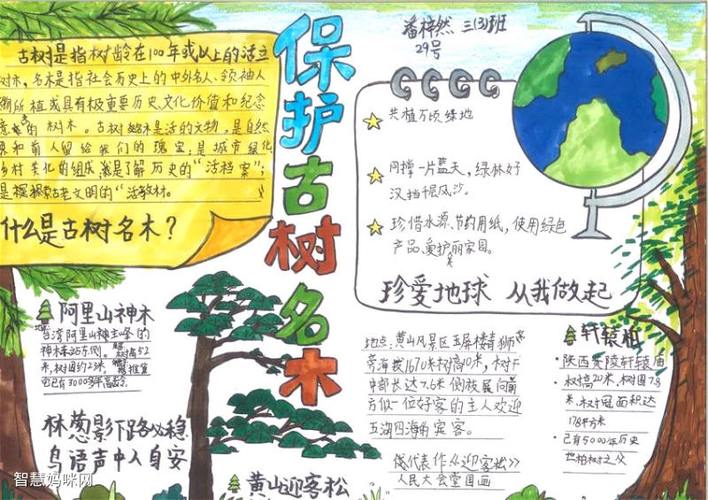 保护古树名木
潘梓然 三(3)班
29号
古树是指树龄在100年或以上的活立
树木,名木是指社会历史上的中外名人、领袖人
所植或具有极重要历史、文化价值和纪念
的树木。古树名木是活的文物,是自然
界和前人留给我们的瑰宝;是城市绿化
乡村美化的组成
是了解历史的“活档案”;
文明的“活教材。
什么是古树名木?
共植万顷绿地
同撑一片蓝天,绿林好
汉挡住风沙。
珍惜水源、节约用纸,使用绿色
产品、爱护丽家园。
珍爱地球 从我做起
阿里山神木
台湾阿里山神
神木
树高52
米,树围约23米,
已有3000多年高龄。
林葱影下路必稳
鸟语声中人自安
黄山迎客松
地点:黄山风景区玉屏楼青狮
旁海拔1670米树高10米,树干
中部长达7.6米侧枝展向前
方似一位好客的主人欢迎
五湖四海的宾客。
代表作《迎客松》
人民大会堂国画
轩辕柏
陕西黄陵轩辕庙
树高20米,树围7.8
米,树冠面积达
178平方米
已有5000年历史
柏树之父
智慧妈咪网